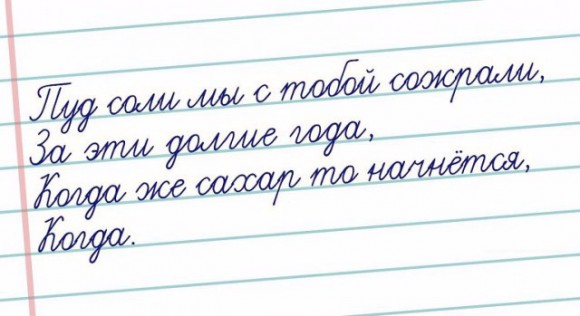 Пуд соли мы с тобой сожрали,
За эти долгие года,
Когда же сахар то начнётся,
Когда.